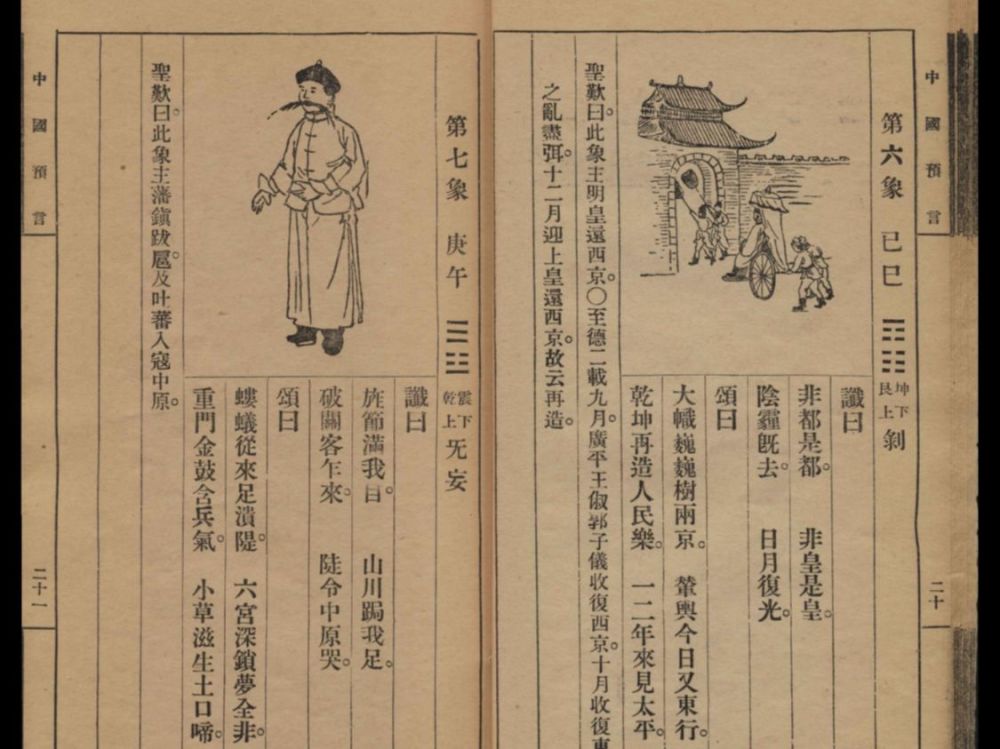 中國預言
二十
第六象 己巳 ䷖ 坤下艮上 剝
讖曰
非都是都。 非皇是皇。
陰霾旣去。 日月復光。
頌曰
大幟巍巍樹兩京。 輦輿今日又東行。
乾坤再造人民樂。 一二年來見太平。
聖歎曰。此象主明皇還西京。〇至德二載九月。廣平王俶郭子儀收復西京。十月收復東
之亂盡弭。十二月迎上皇還西京。故云再造。
第七象 庚午 ䷘ 震下乾上 旡妄
讖曰
旌節滿我目。 山川跼我足。
破關客乍來。 陡令中原哭。
頌曰
螻蟻從來足潰隄。 六宮深鎖夢全非。
重門金鼓含兵氣。 小草滋生土口啼。
聖歎曰。此象主藩鎭跋扈。及叶蕃入寇中原。
中國預言
二十一